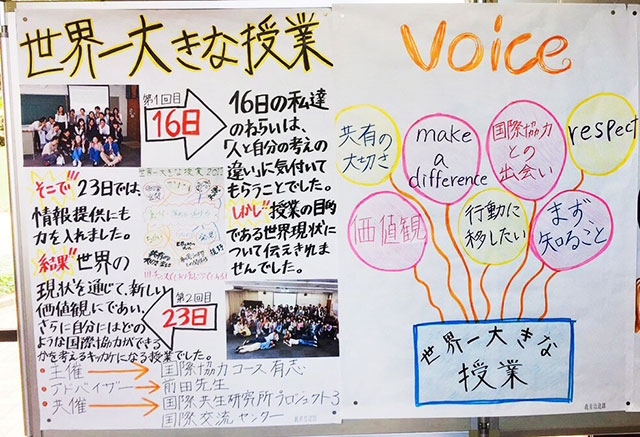 世界一大きな授業
第1回目
16日
16日の私達
のねらいは、
「人と自分の考えの
違い」に気付いて
もらうことでした。
しかし授業の目的
である世界現状に
ついて伝えきれま
せんでした。
そこで23日では、
情報提供にも
力を入れました。
結果世界の
現状を通じて、新しい
価値観にであい、
さらに自分にはどの
ような国際協力ができる
かを考えるキッカケになる授業でした。
第2回目
23日
主催→国際協力コース有志
アドバイザー→前田先生
共催→国際共生研究所プロジェクト3
国際交流センター
Voice
共有の
大切さ
make
a
difference
国際協力
との
出会い
respect
価値観
行動に
移したい
まず
知ること
世界一大きな
授業